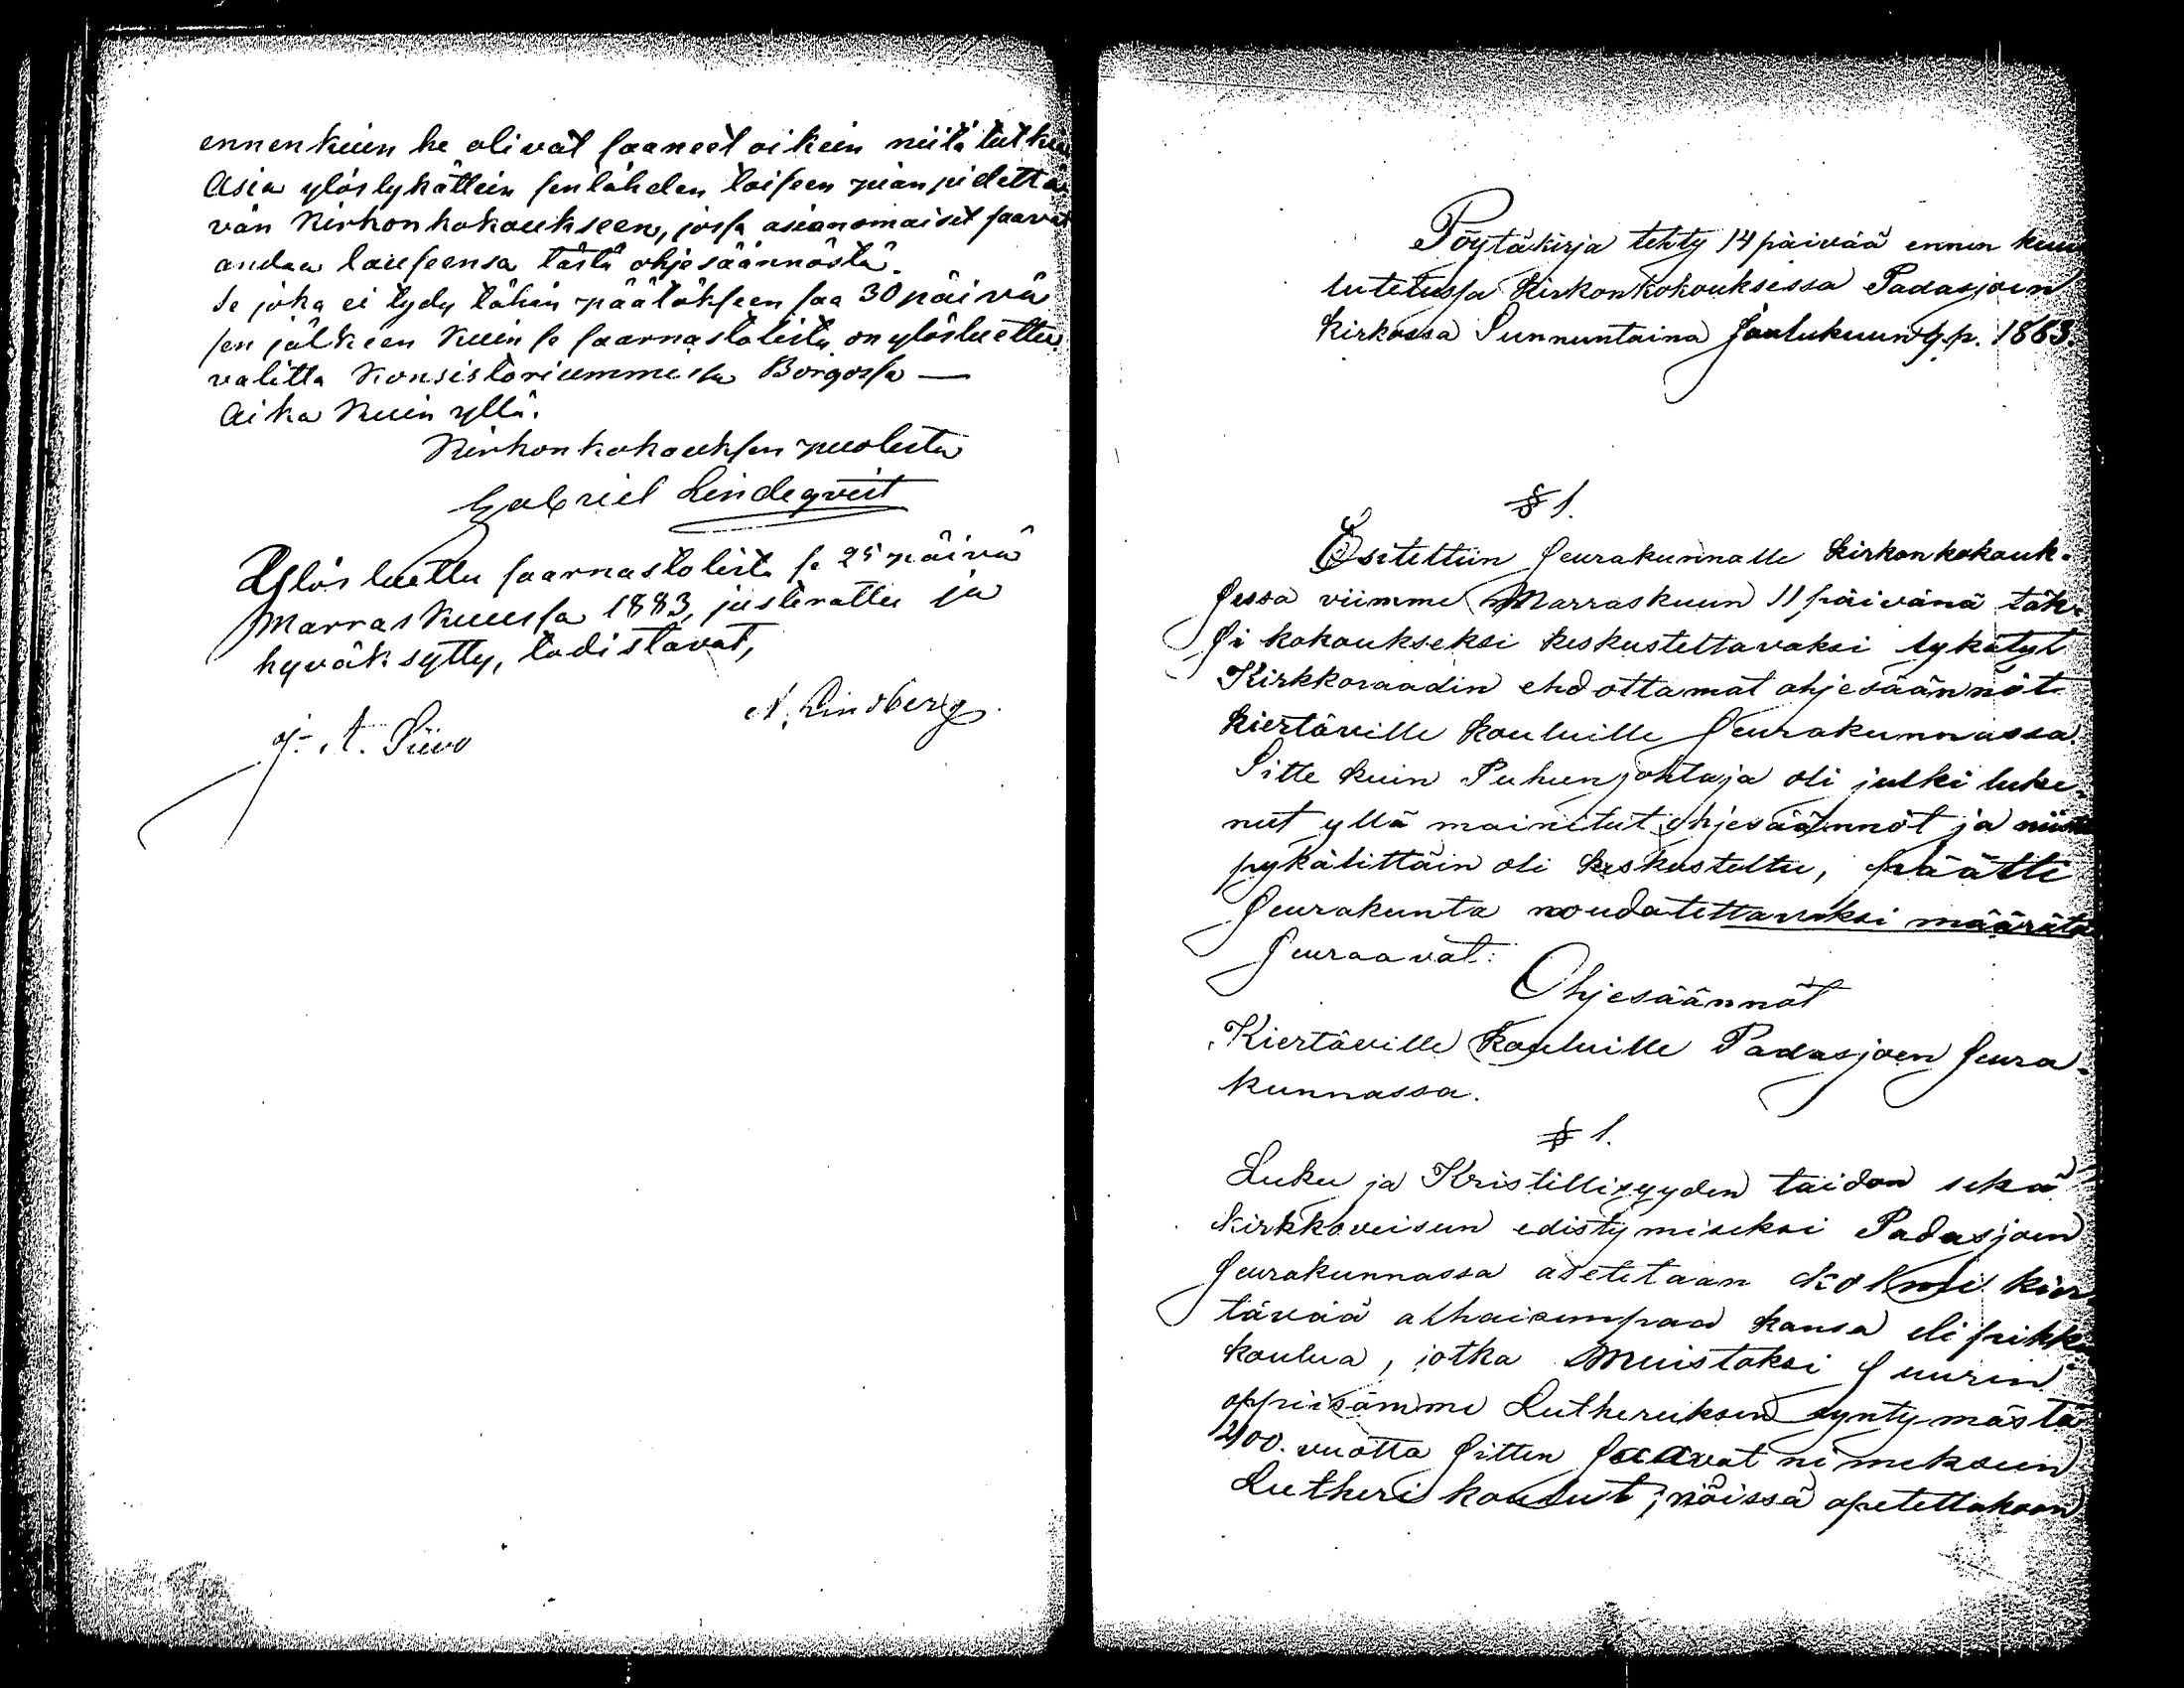 ennenkuin he olivat saaneet oikein niitä tutkia
Asia ylöslykättiin sentähden toiseen pian pidettä
vän Kirkonkokoukseen, jossa asianomaiset saavat
andaa lauseensa tästä ohjesäännöstä.
Se joka ei tydy tähän päätökseen saa 30 päivä
sen jälkeen kuin se saarnastolista on ylösluettu
valitta Konsistoriummissa Borgossa —
Aika kuin yllä.
Kirkonkokouksen puolesta
Gabriel Lindeqvist
Ylösluettu saarnastolista se 25 päivä
Marraskuussa 1883, justerattu ja
hyväksytty, todistavat,
A. Lindberg
J. A. Siivo
Pöytäkirja tehty 14 päivää ennen kuu
lutetussa Kirkonkokouksessa Padasjoen
Kirkossa Sunnuntaina Joulukuun 9 p. 1883.
§ 1.
Esitettiin Seurakunnalle Kirkonkokouk-
sessa viimme Marraskuun 11 päivänä täk-
si kokoukseksi keskusteltavaksi lykätyt
Kirkkoraadin ehdottamat ohjesäännöt
kiertäville kouluille Seurakunnassa.
Sitte kuin Puheenjohtaja oli julki luke-
nut yllä mainitut ohjesäännöt ja niistä
pykälittäin oli keskusteltu, päätti
Seurakunta noudatettavaksi määrätä
Seuraavat:
Ohjesäännöt
Kiertäville Kouluille Padasjoen Seura-
kunnassa.
§ 1.
Luku ja Kristillisyyden taidon sekä
Kirkkoveisun edistymiseksi Padasjoen
Seurakunnassa asetetaan kolme kier
tävää alhaisempaa kansa eli pikku
koulua, jotka Muistoksi Suuren
oppiisämme Lutheruksen syntymästä
400. vuotta sitten Saavat nimeksein
Lutheri koulut; näissä opetettakoon